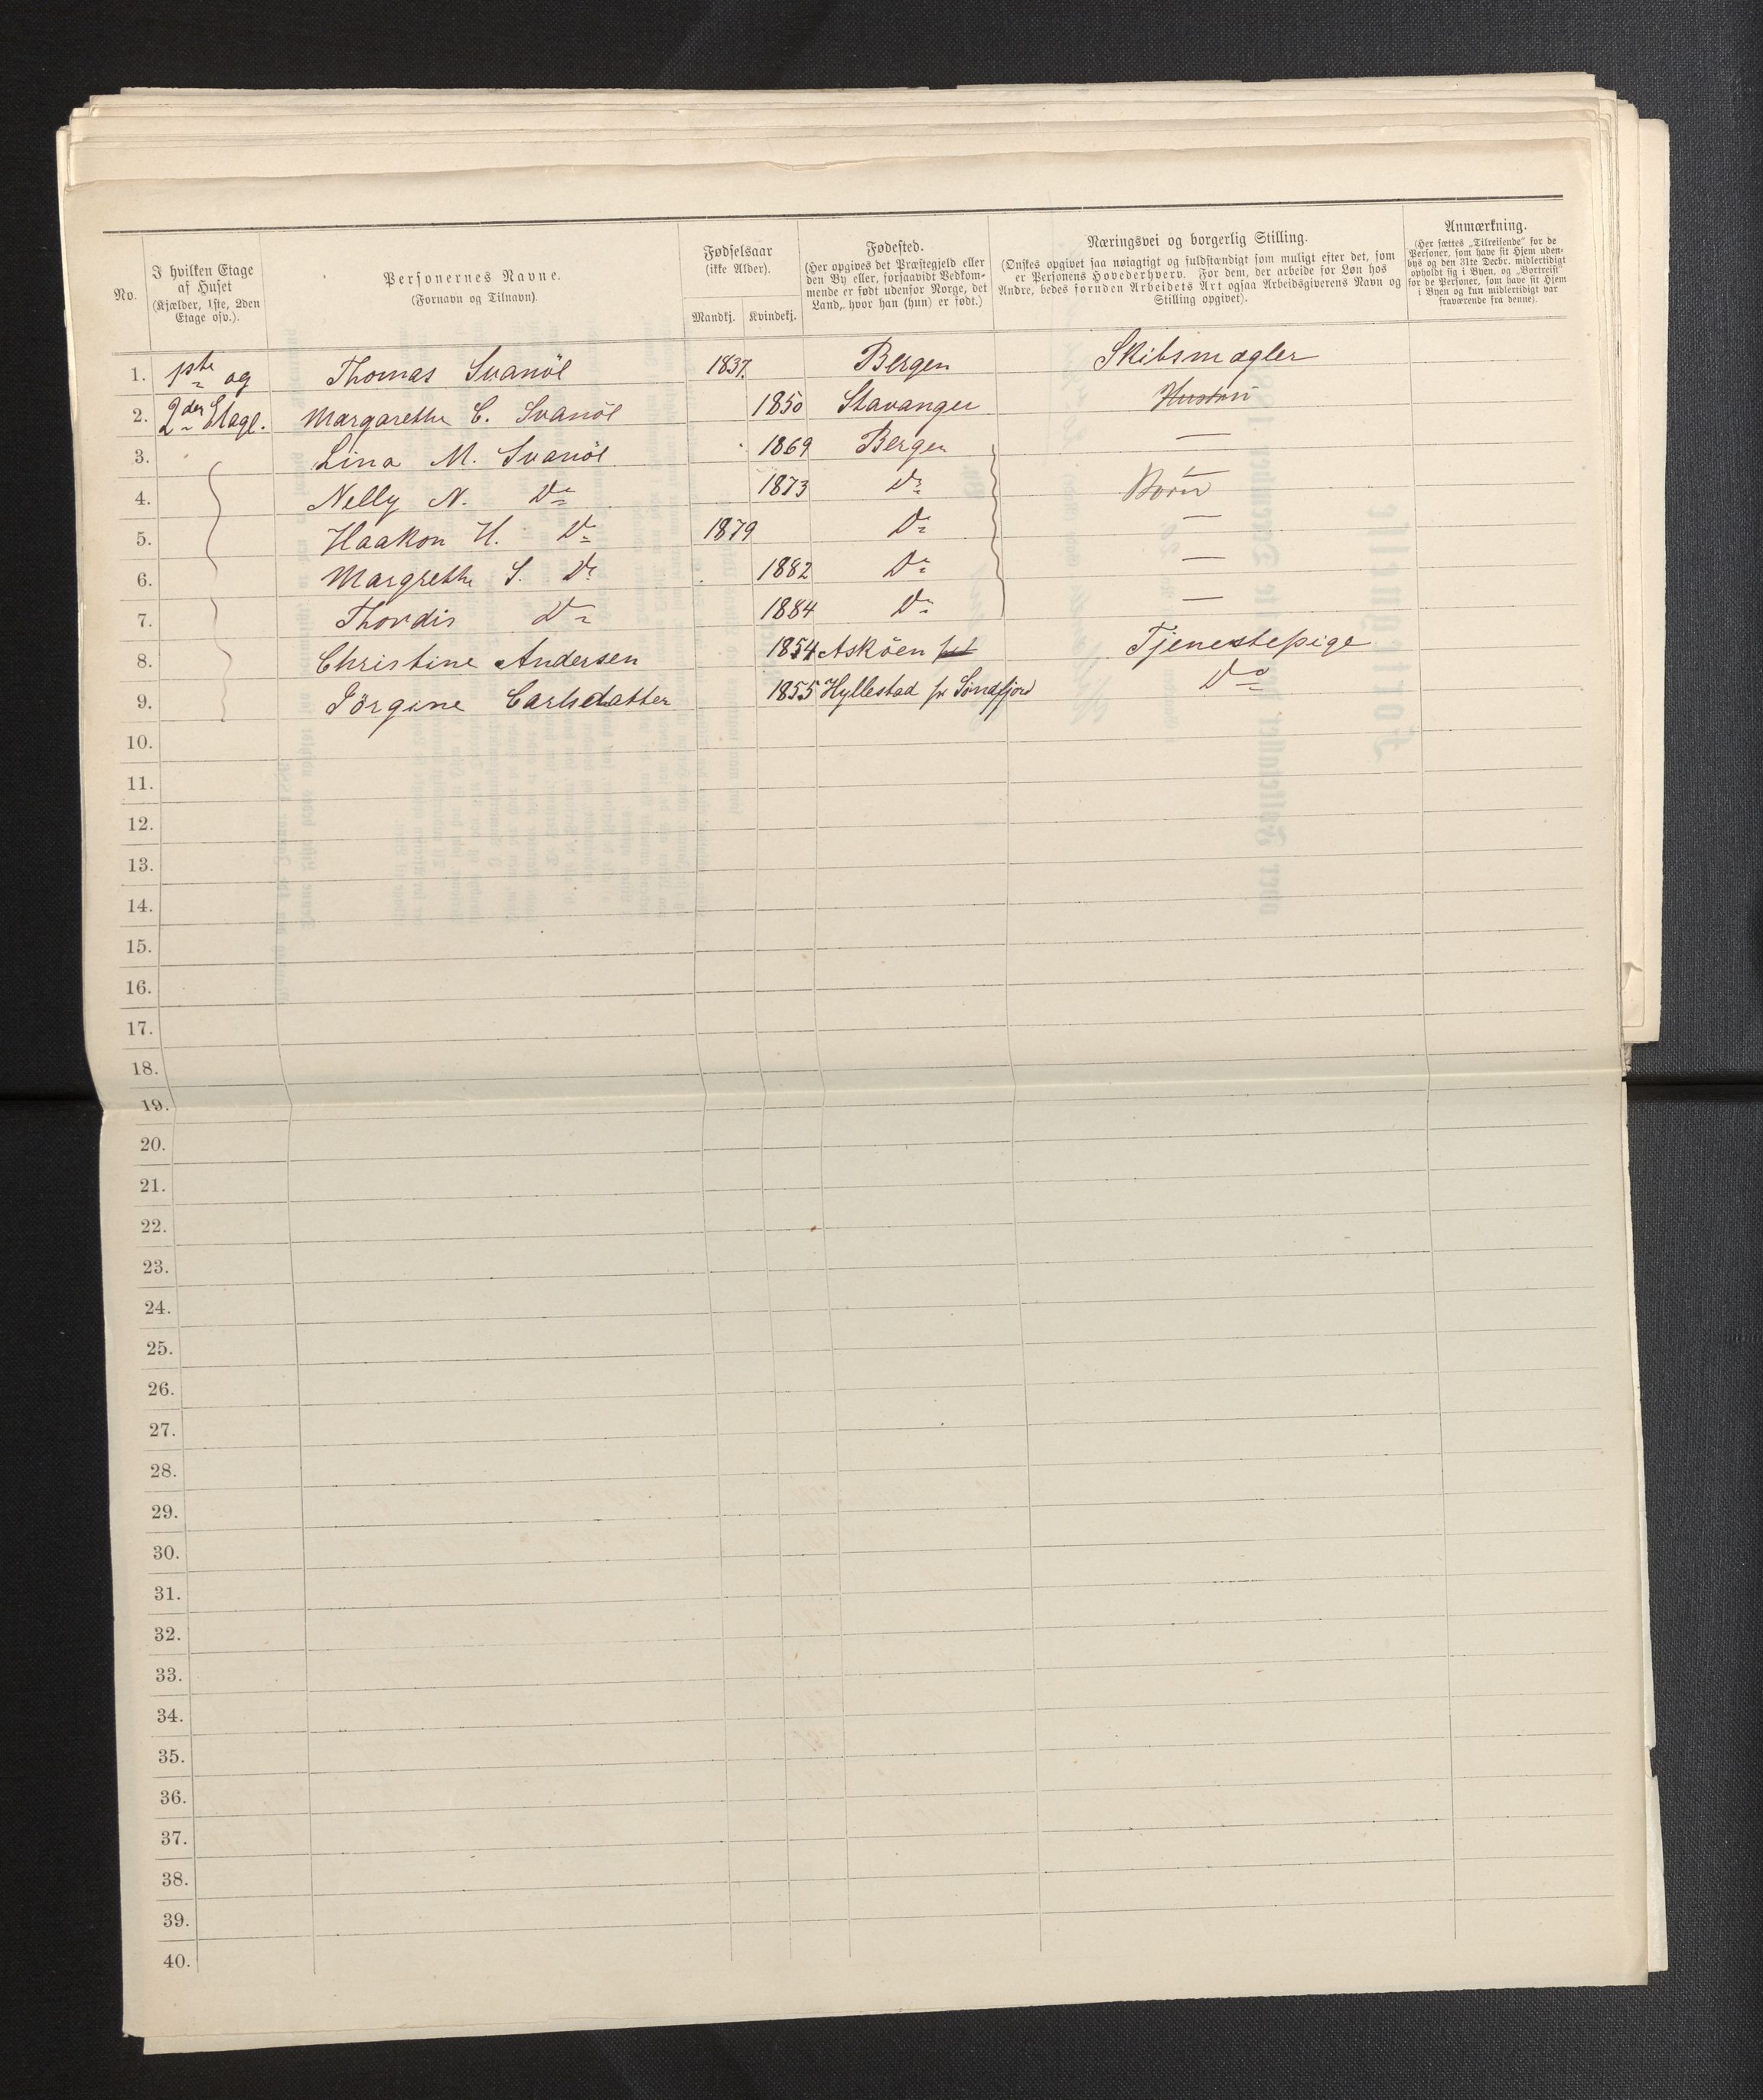 No.
I hvilken Etage
af Huset
(Kjælder, 1ste, 2den
Etage osv.).
Personernes Navne.
(Fornavn og Tilnavn).
Fødselsaar
(ikke Alder).
Mandkj. Kvindekj.
Fødested.
(Her opgives det Præstegjeld eller
den By eller, forsaavidt Vedkom-
mende er født udenfor Norge, det
Land, hvor han (hun) er født.)
Næringsvei og borgerlig Stilling.
(Ønskes opgivet saa nøiagtigt og fuldstændigt som muligt efter det, som
er Personens Hovederhverv. For dem, der arbeide for Løn hos
Andre, bedes foruden Arbeidets Art ogsaa Arbeidsgiverens Navn og
Stilling opgivet).
Anmærkning.
(Her sættes „Tilreisende" for de
Personer, som have sit Hjem uden-
bys og den 31te Decbr. midlertidigt
opholdt sig i Byen, og „Bortreist"
for de Personer, som have sit Hjem
i Byen og kun midlertidigt var
fraværende fra denne).
1. 1ste og Thomas Svanöe 1837. Bergen Skibsmægler
2. 2den Etage. Margarethe C. Svanöe 1850 Stavanger Hustru
3. Lina M. Svanöe 1869 Bergen —
4. Nelly N. Do 1873 Do Börn —
5. Haakon H. Do 1879 Do —
6. Margrethe S. Do 1882 Do —
7. Thordis Do 1884 Do —
8. Christine Andersen 1854 Asköen Tjenestepige
9. Jörgine Carlsdatter 1855 Hyllestad pr Söndfjord Do
10.
11.
12.
13.
14.
15.
16.
17.
18.
19.
20.
21.
22.
23.
24.
25.
26.
27.
28.
29.
30.
31.
32.
33.
34.
35.
36.
37.
38.
39.
40.